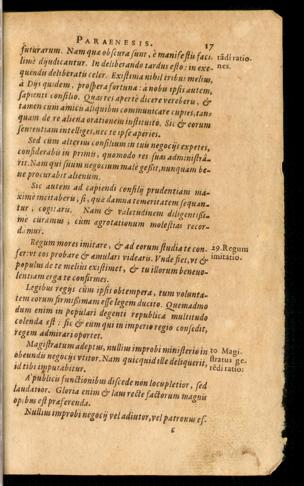 PARAENESIS. 17
futurarum. Nam quæ obscura sunt, è manifestis faci-
limè djudicantur. In deliberando tardus esto: in exe-
quendis deliberatis celer. Existima nihil tribui melius,
à Dijs quidem, prospera fortuna: à nobis ipsis autem,
sapienti consilio. Quas res apertè dicere vereberis, &
tamen cum amicis aliquibus communicare cupies, tan-
quam de re aliena orationem instituito. Sic & eorum
sententiam intelliges, nec te ipse aperies.
tãdi ratio-
nes.
Sed cum alterius consilium in tuis negocijs expetes,
considerabis in primis, quomodo res suas administra-
rit. Nam qui suum negocium malè gessit, nunquam be-
ne procurabit alienum.
Sic autem ad capiendi consilij prudentiam ma-
ximè incitaberis, si, quæ damna temeritatem sequan-
tur, cogitaris. Nam & valetudinem diligentissi-
mè curamus, cum ægrotationum molestias recor-
damur.
Regum mores imitare, & ad eorum studia te con-
fer: vt eos probare & æmulari videaris. Vnde fiet, vt &
populus de te melius existimet, & tu illorum benevo-
lentiam erga te confirmes.
29. Regum
imitatio.
Legibus regijs cùm ipsis obtempera, tum volunta-
tem eorum firmissimam esse legem ducito. Quemadmo
dum enim in populari degenti republica multitudo
colenda est: sic & eum qui in imperio regio consedit,
regem admirari oportet.
Magistratum adeptus, nullius improbi ministerio in
obeundis negocijs vtitor. Nam quicquid ille deliquerit,
id tibi imputabitur.
30 Magi-
stratus ge-
rẽdi ratio:
A publicis functionibus discede non locupletior, sed
laudatior. Gloria enim & laus rectè factorum magnis
opibus est præferenda.
Nullius improbi negocij vel adiutor, vel patronus es-
c